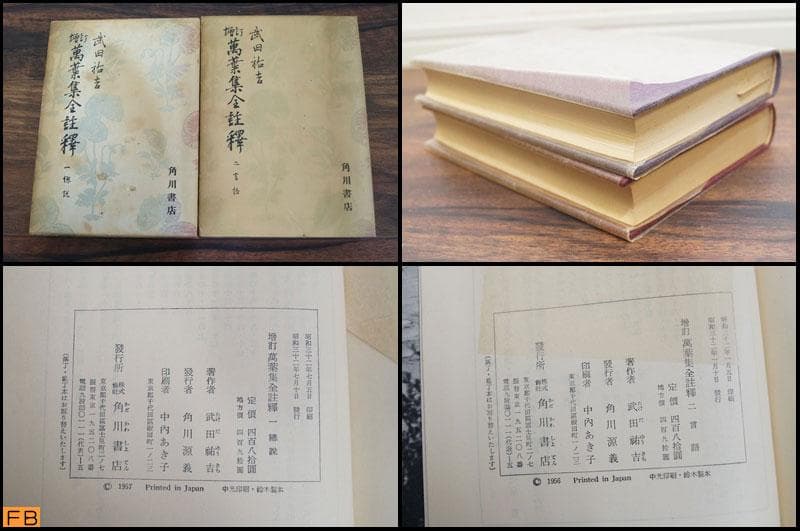 武田祐吉
増訂 萬葉集全註釋
一 總説
角川書店
武田祐吉
増訂 萬葉集全註釋
二 言語
角川書店
昭和三十二年七月五日 印刷
昭和三十二年七月十日 發行
増訂 萬葉集全註釋 一 總説
定價 四百八拾圓
地方價 四百九拾圓
著作者 武田祐吉
發行者 角川源義
印刷者 中内あき子
發行所 株式會社 角川書店
(落丁・亂丁本はお取り替えいたします)
© 1957 Printed in Japan 中光印刷・鈴木製本
昭和三十二年一月五日 印刷
昭和三十二年一月十日 發行
増訂 萬葉集全註釋 二 言語
定價 四百八拾圓
地方價 四百九拾圓
著作者 武田祐吉
發行者 角川源義
印刷者 中内あき子
發行所 株式會社 角川書店
(落丁・亂丁本はお取り替えいたします)
© 1956 Printed in Japan 中光印刷・鈴木製本
FB